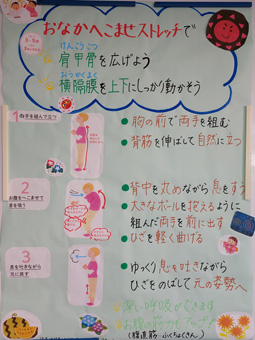 おなかへこませストレッチで
けんこうこつ
肩甲骨を広げよう
おうかくまく
横隔膜を上下にしっかり動かそう
1 両手を組んで立つ
●胸の前で両手を組む
●背筋を伸ばして自然に立つ
2 お腹をへこませて
息を吸う
●背中を丸めながら息をすう
●大きなボールを抱えるように
組んだ両手を前に出す
●ひざを軽く曲げる
3 息を吐きながら
元に戻す
●ゆっくり息を吐きながら
ひざをのばして元の姿勢へ
深い呼吸ができます
(腹直筋・ふくちょくきん)